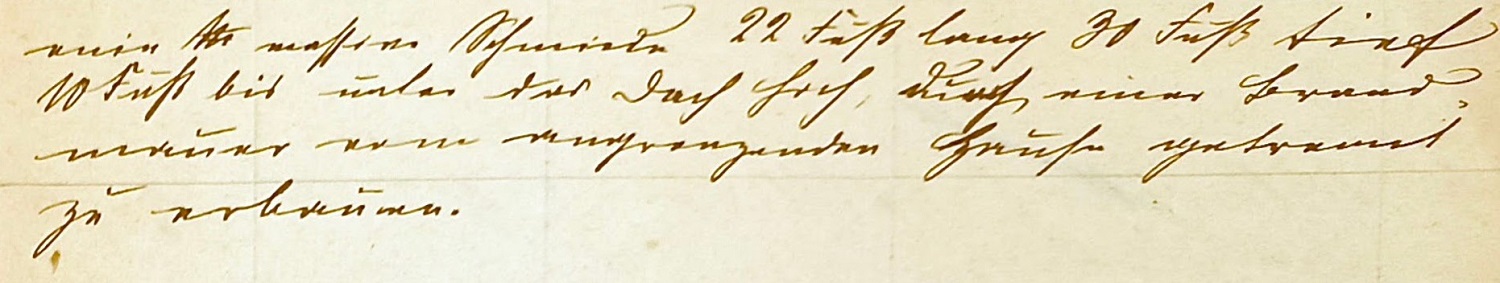 eine massive Schmiede 22 Fuß lang 30 Fuß tief
10 Fuß bis unter das Dach hoch, durch einer Brand-
mauer vom angrenzenden Hause getrennt
zu erbauen.